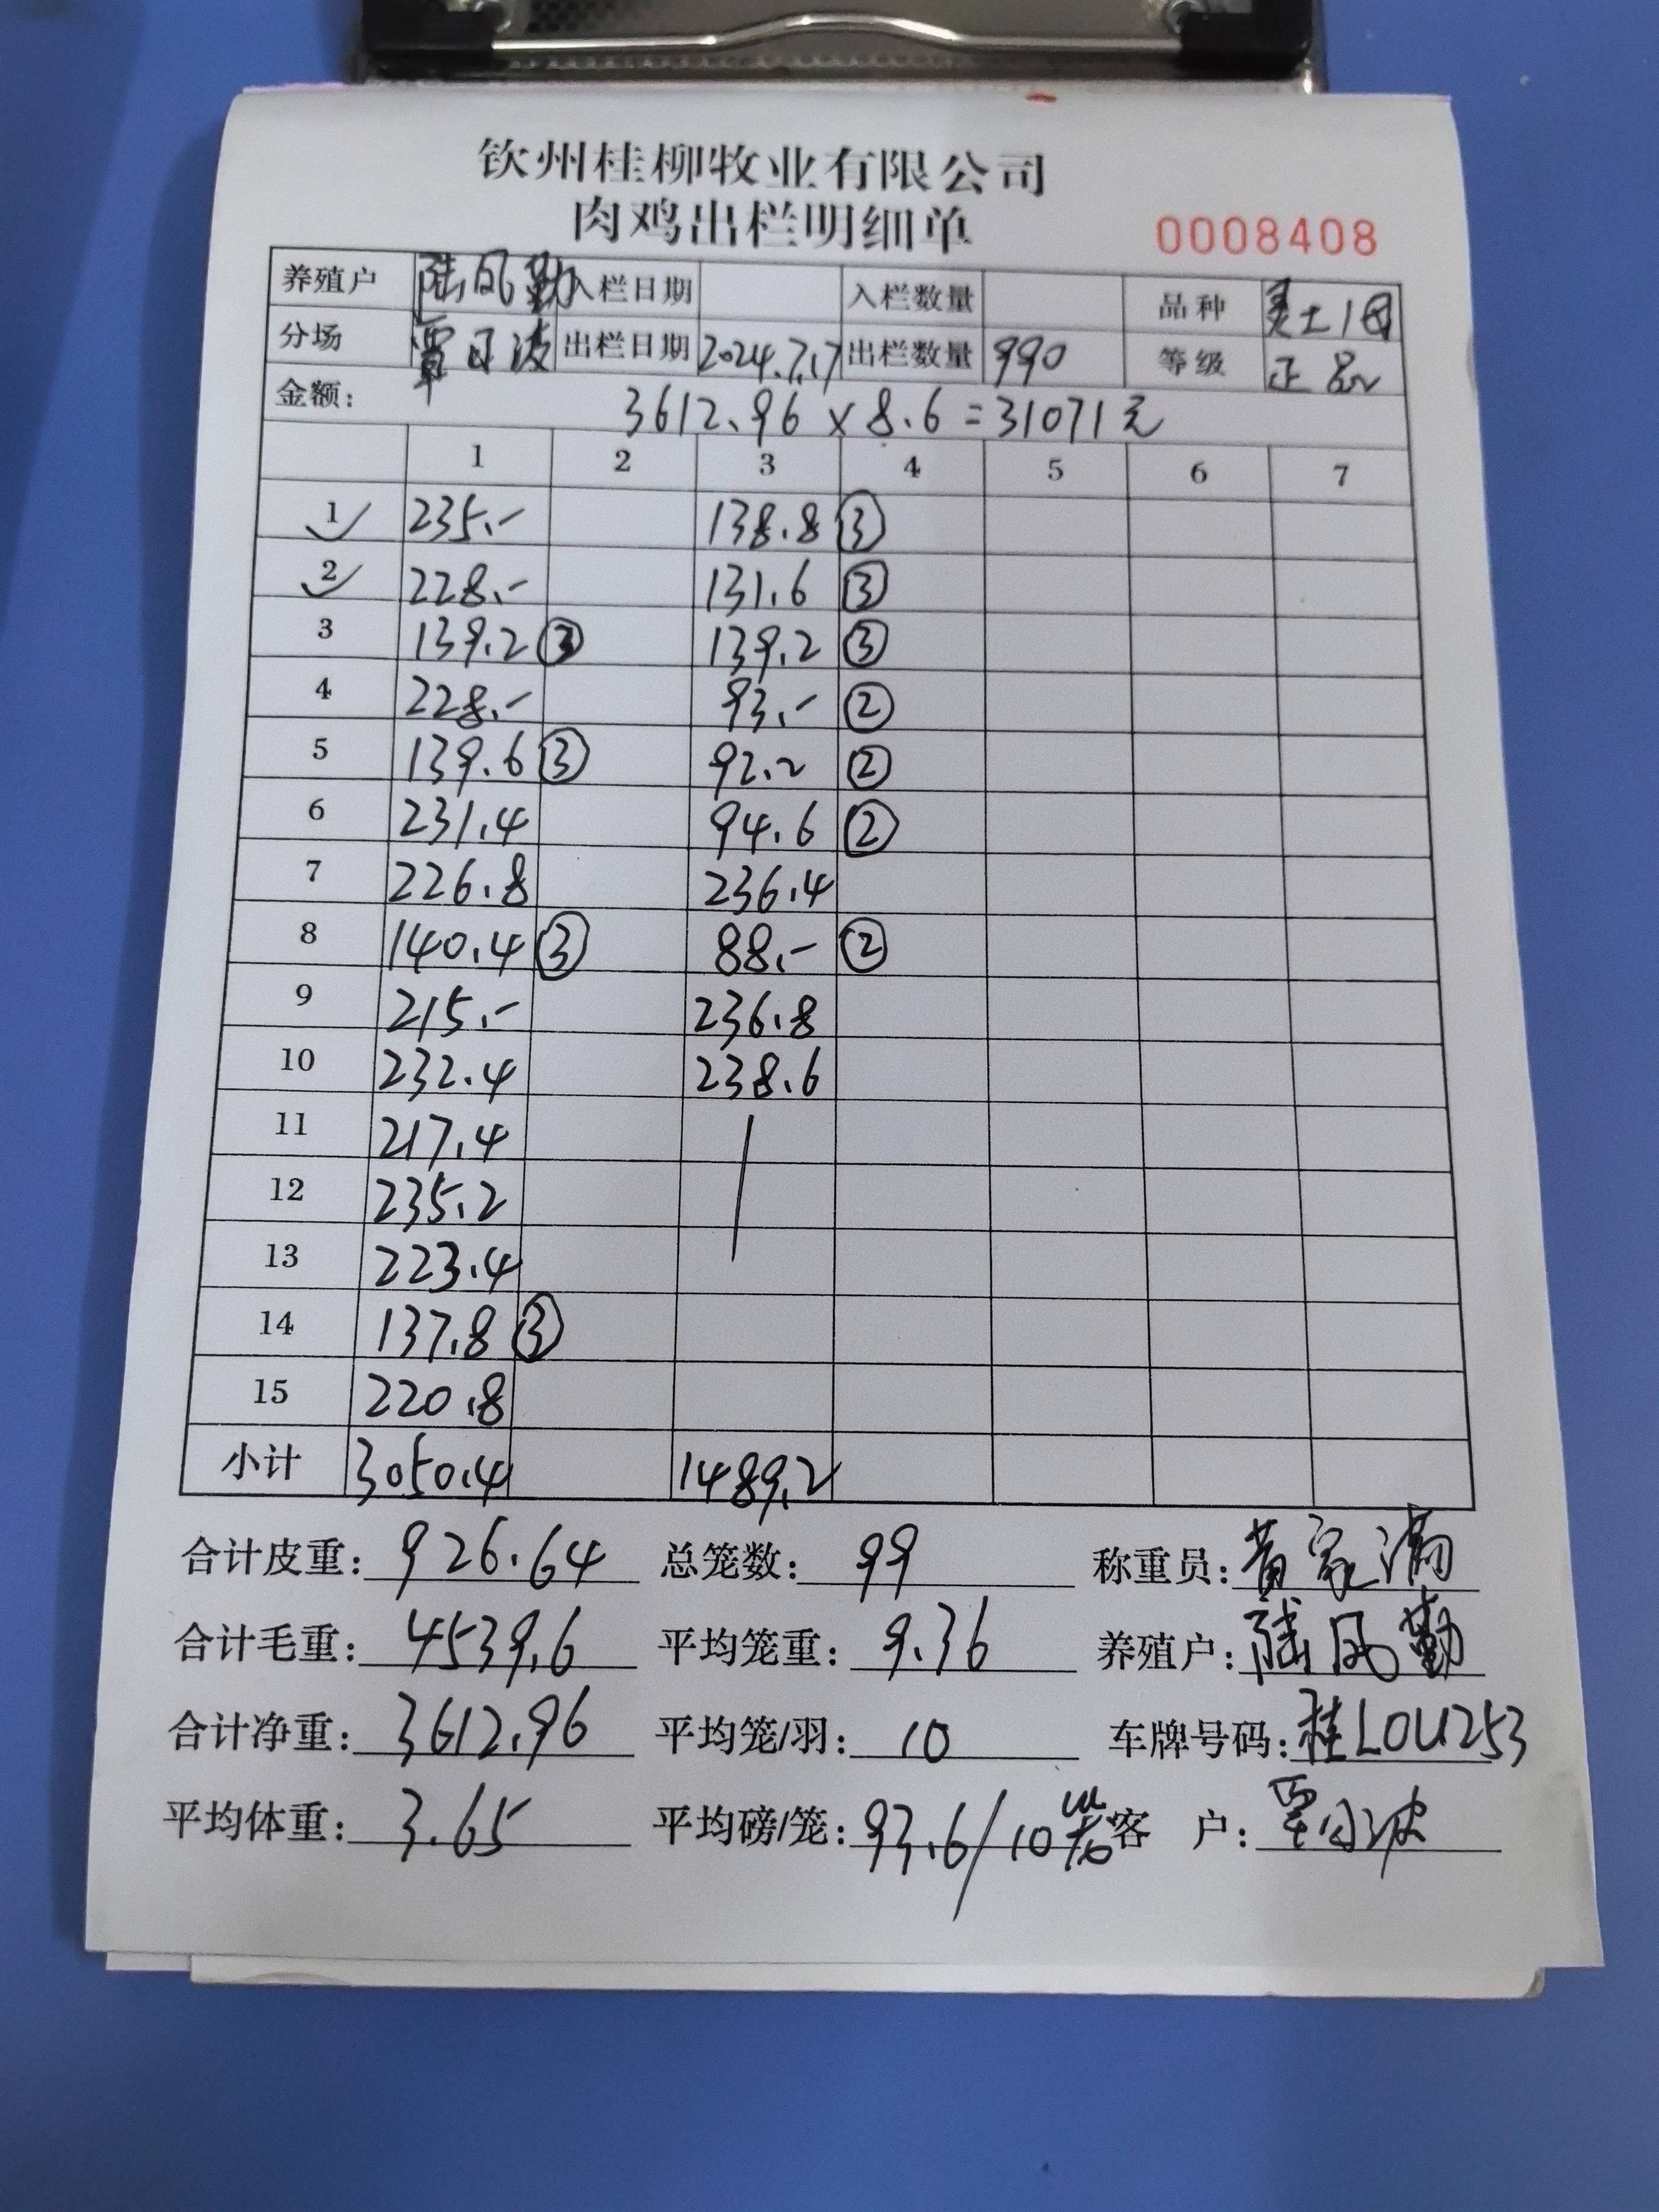 钦州桂柳牧业有限公司
肉鸡出栏明细单 0008408
养殖户 陆凤勤 入栏日期 入栏数量 品种
分场 出栏日期 2024.7.17 出栏数量 990 等级 正品
金额: 3612.96 × 8.6 = 31071元
1 2 3 4 5 6 7
1 235.- 138.8 ③
2 228.- 131.6 ③
3 139.2 ③ 139.2 ③
4 228.- 93.- ②
5 139.6 ③ 92.2 ②
6 231.4 94.6 ②
7 226.8 236.4
8 140.4 ③ 88.- ②
9 215.- 236.8
10 232.4 238.6
11 217.4
12 235.2
13 223.4
14 137.8 ③
15 220.8
小计 3050.4 1489.2
合计皮重: 926.64 总笼数: 99 称重员: 黄家满
合计毛重: 4539.6 平均笼重: 9.36 养殖户: 陆凤勤
合计净重: 3612.96 平均笼/羽: 10 车牌号码: 桂L0U253
平均体重: 3.65 平均磅/笼: 93.6/10 客 户: